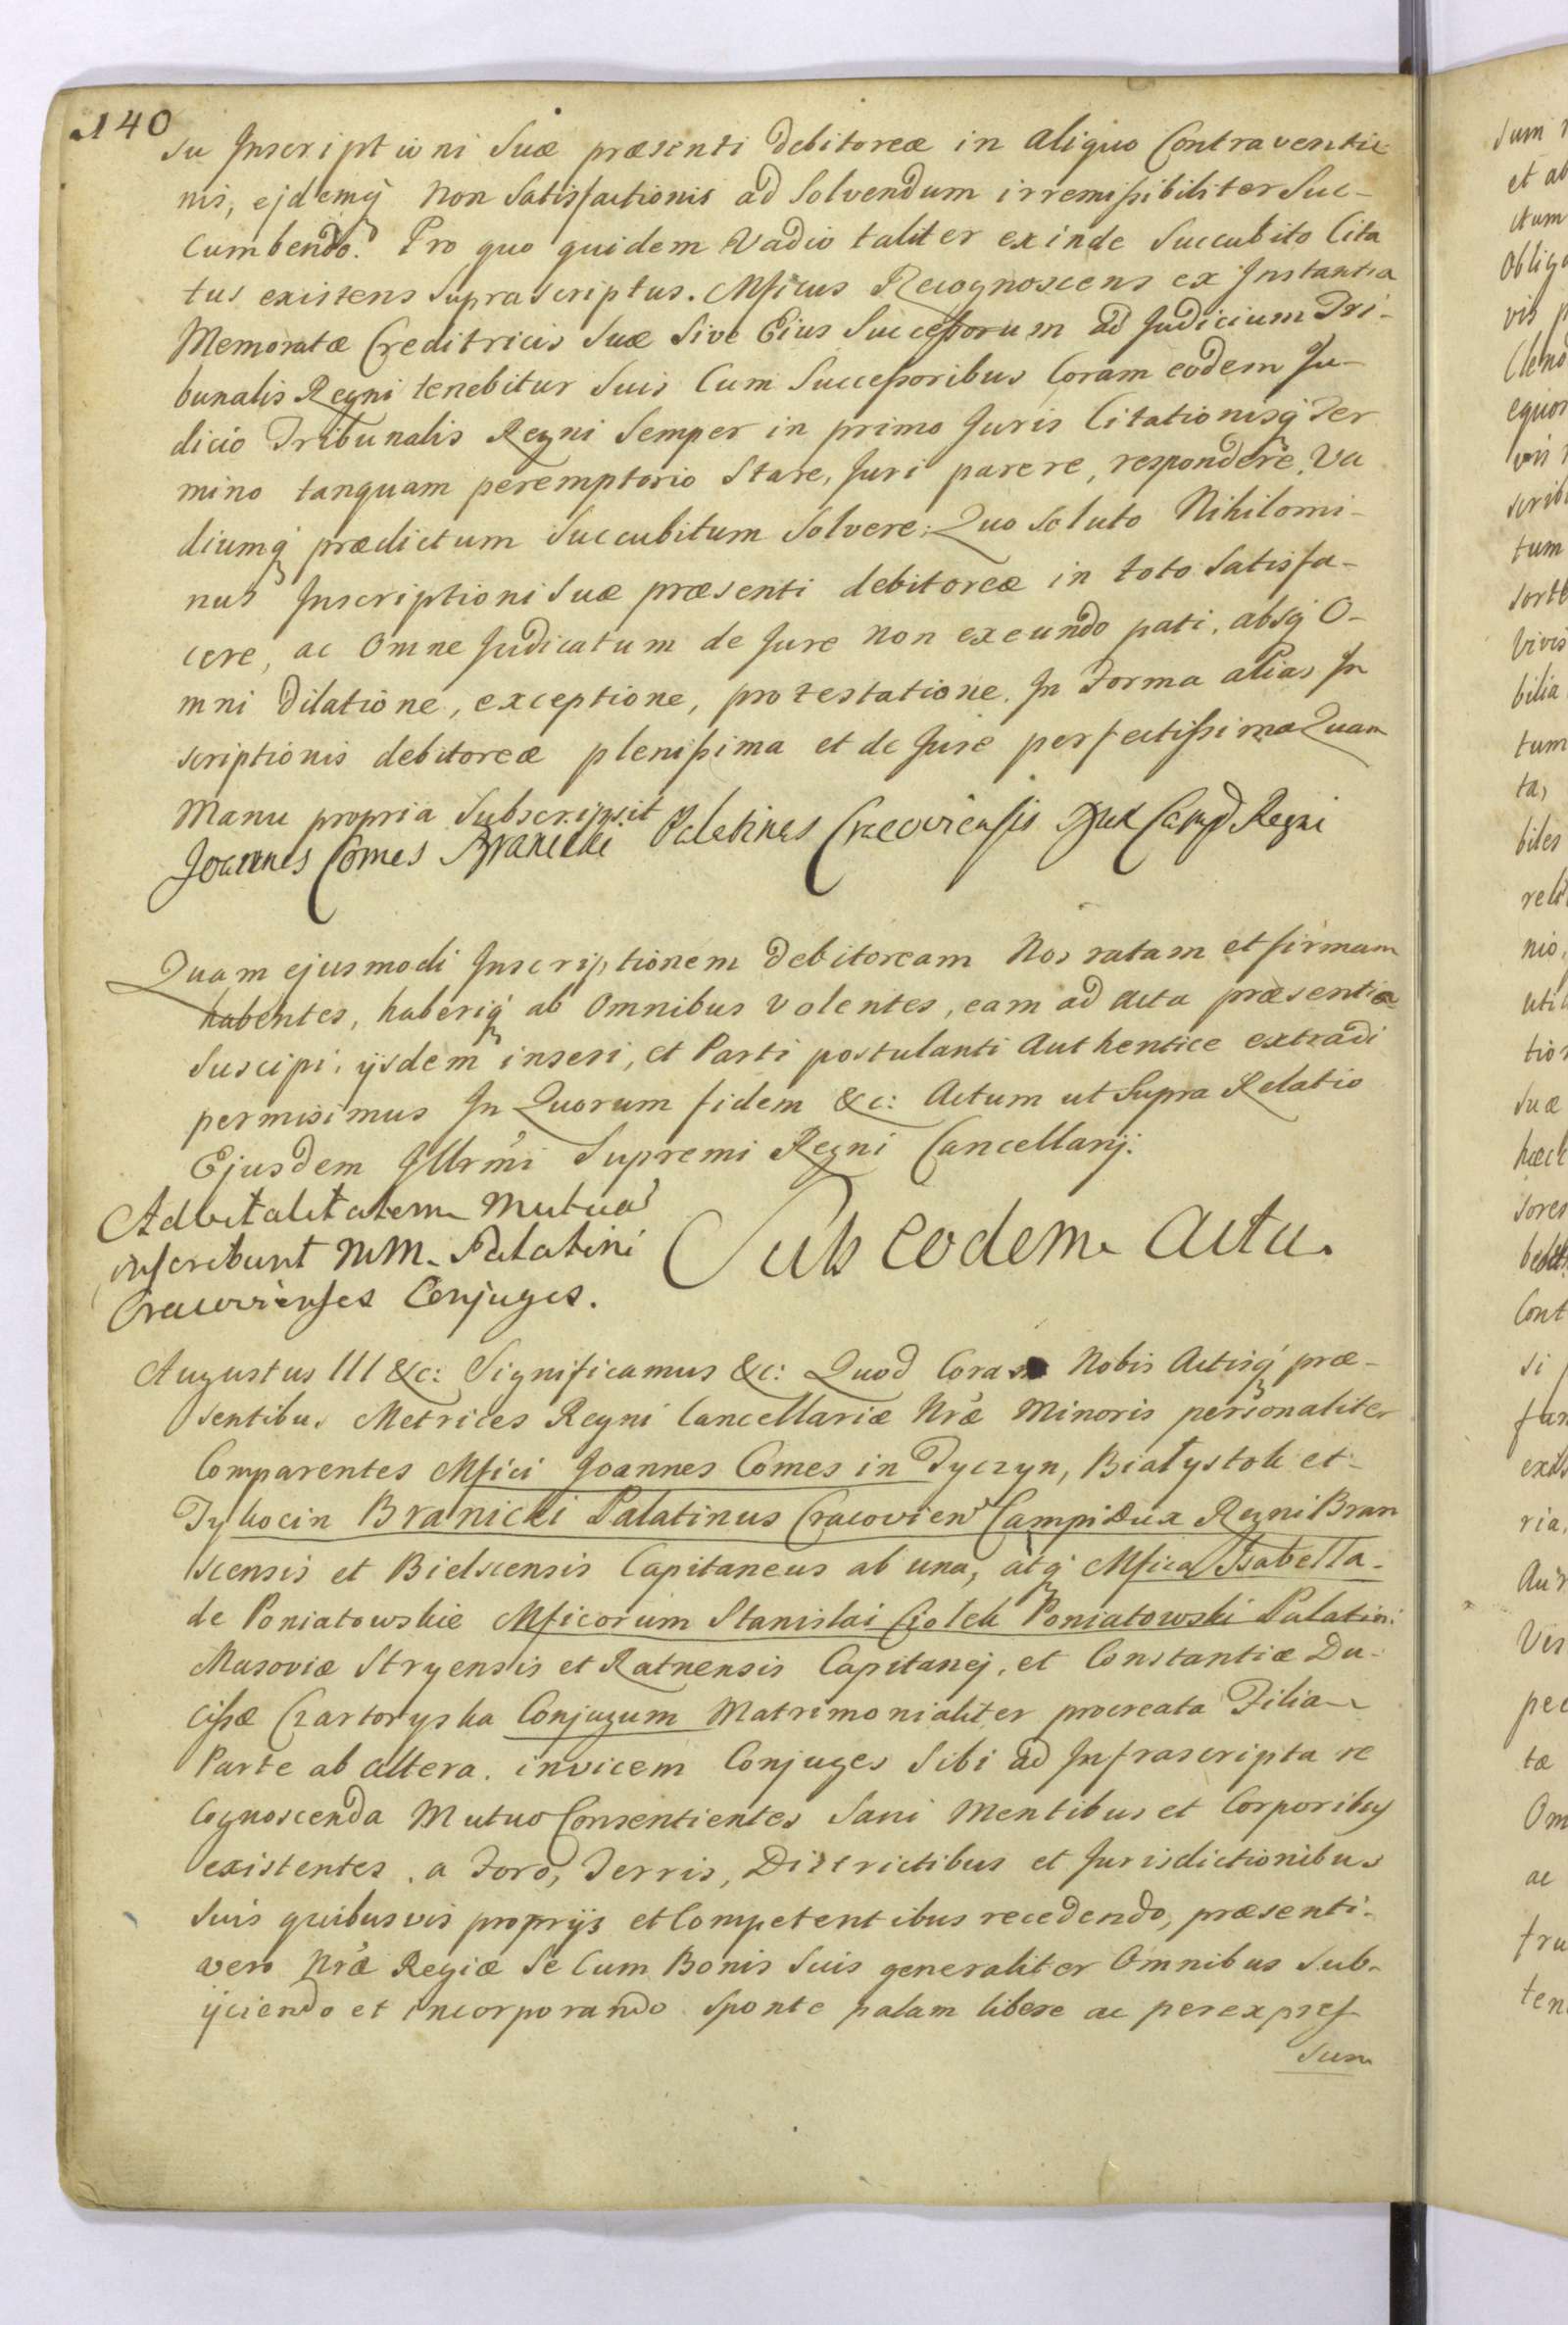 140
su Inscriptioni Suæ præsenti debitoreæ in aliquo Contraventio
nis, ejdemq́ Non Satisfactionis ad Solvendum irremissibiliter Suc-
cumbendo. Pro quo quidem Vadio taliter exinde Succubito Cita
tus existens supra scriptus. Mficus Recognoscens ex Instantia
Memoratæ Creditricis Suæ Sive Eius Successorum ad Judicium Tri-
bunalis Regni tenebitur Suis Cum Successoribus Coram eodem Ju-
dicio Tribunalis Regni Semper in primo Juris Citationisq́ Ter
mino tanquam peremptorio Stare, Juri parere, respondere, Va
diumq́ prædictum Succubitum Solvere. Quo Soluto Nihilomi-
nus Inscriptioni Suæ præsenti debitoreæ in toto Satisfa-
cere, ac Omne Judicatum de Jure Non exeundo pati, absq́ O-
mni Dilatione, exceptione, protestatione. In Forma alias In
scriptionis debitoreæ plenissima et de Jure perfectissima Quam
Manu propria Subscripsit
Joannes Comes Branicki Palatinus Cracoviensis Dux Camp Regni
Quam ejusmodi Inscriptionem Debitoream Nos ratam et firmam
habentes, haberiq́ ab Omnibus Volentes, eam ad Acta præsentia
Suscipi, ijsdem inseri, et Parti postulanti Authentice extradi
permisimus In Quorum fidem &c: Actum ut Supra Relatio
Ejusdem Illrmi Supremi Regni Cancellarij:
Advitalitatem Mutuas
inscribunt MM. Palatini
Cracovienses Conjuges.
Sub eodem Actu.
Augustus III &c: Significamus &c: Quod Coram Nobis Actisq́ præ-
sentibus Metrices Regni Cancellariæ Nræ Minoris personaliter
Comparentes Mfici Joannes Comes in Tyczyn, Białystok et
Tykocin Branicki Palatinus Cracovien Campidux Regni Bran
scensis et Bielscensis Capitaneus ab una, atq́ Mfica Isabella
de Poniatowskie Mficorum Stanislai Ciołek Poniatowski Palatini
Masoviæ Stryensis et Ratnensis Capitanej, et Constantiæ Du-
cissæ Czartoryska Conjugum Matrimonialiter procreata Filia
Parte ab altera. invicem Conjuges Sibi ad Infrascripta re
cognoscenda Mutuo Consentientes Sani Mentibus et Corporibus
existentes. a Foro, Terris, Districtibus et Jurisdictionibus
Suis quibusvis proprijs et Competentibus recedendo, præsenti
vero Nræ Regiæ Se Cum Bonis Suis generaliter Omnibus Sub-
ijciendo et incorporando Sponte palam libere ac per expres
sum